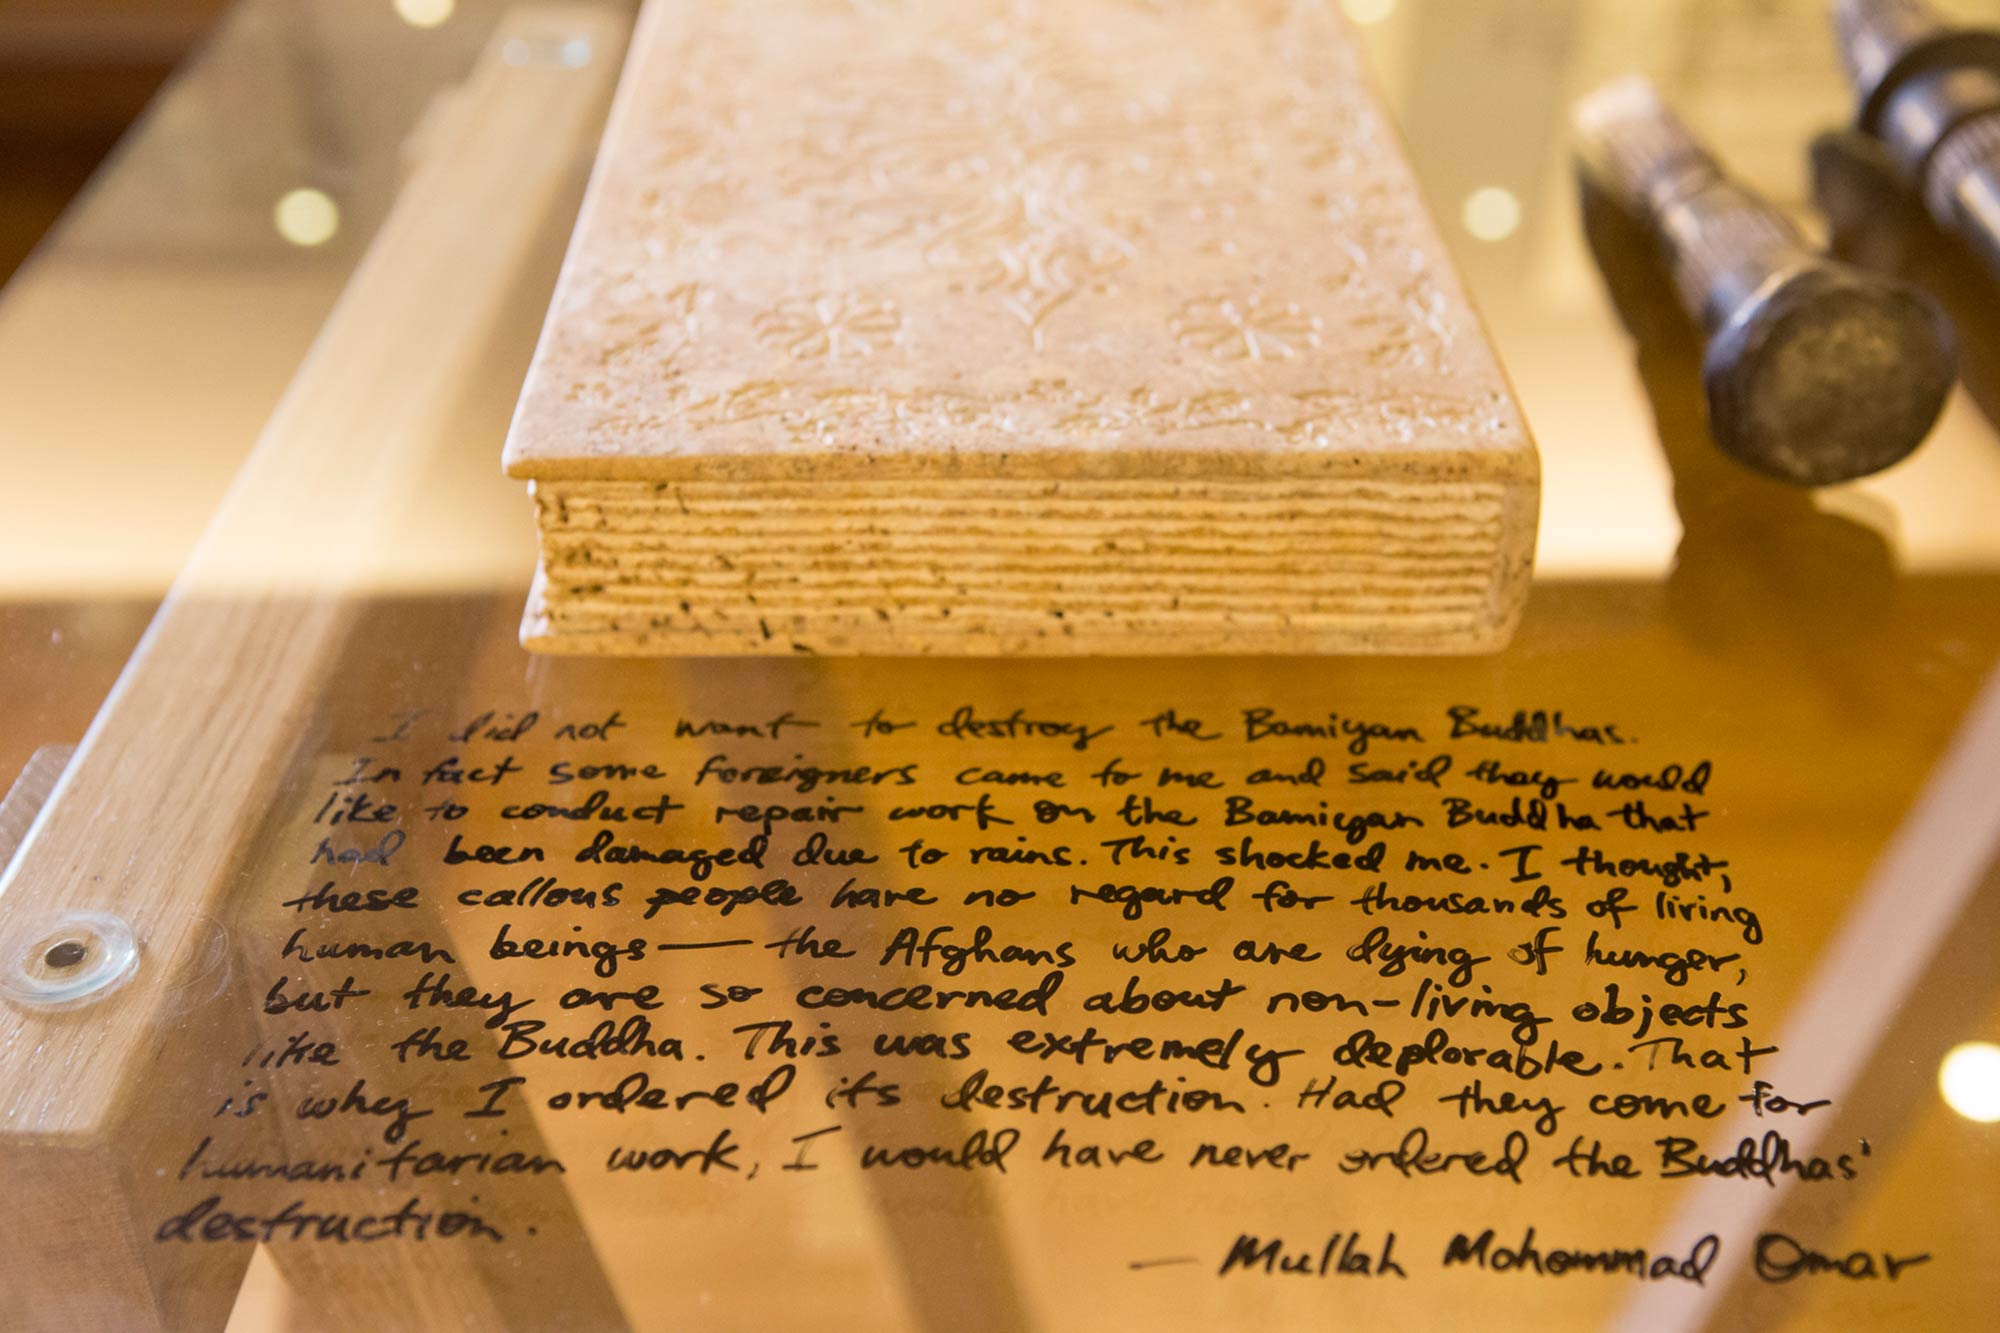 I did not want to destroy the Bamiyan Buddhas.
In fact some foreigners came to me and said they would
like to conduct repair work on the Bamiyan Buddha that
had been damaged due to rains. This shocked me. I thought,
these callous people have no regard for thousands of living
human beings — the Afghans who are dying of hunger,
but they are so concerned about non-living objects
like the Buddha. This was extremely deplorable. That
is why I ordered its destruction. Had they come for
humanitarian work, I would have never ordered the Buddhas'
destruction.
— Mullah Mohommad Omar